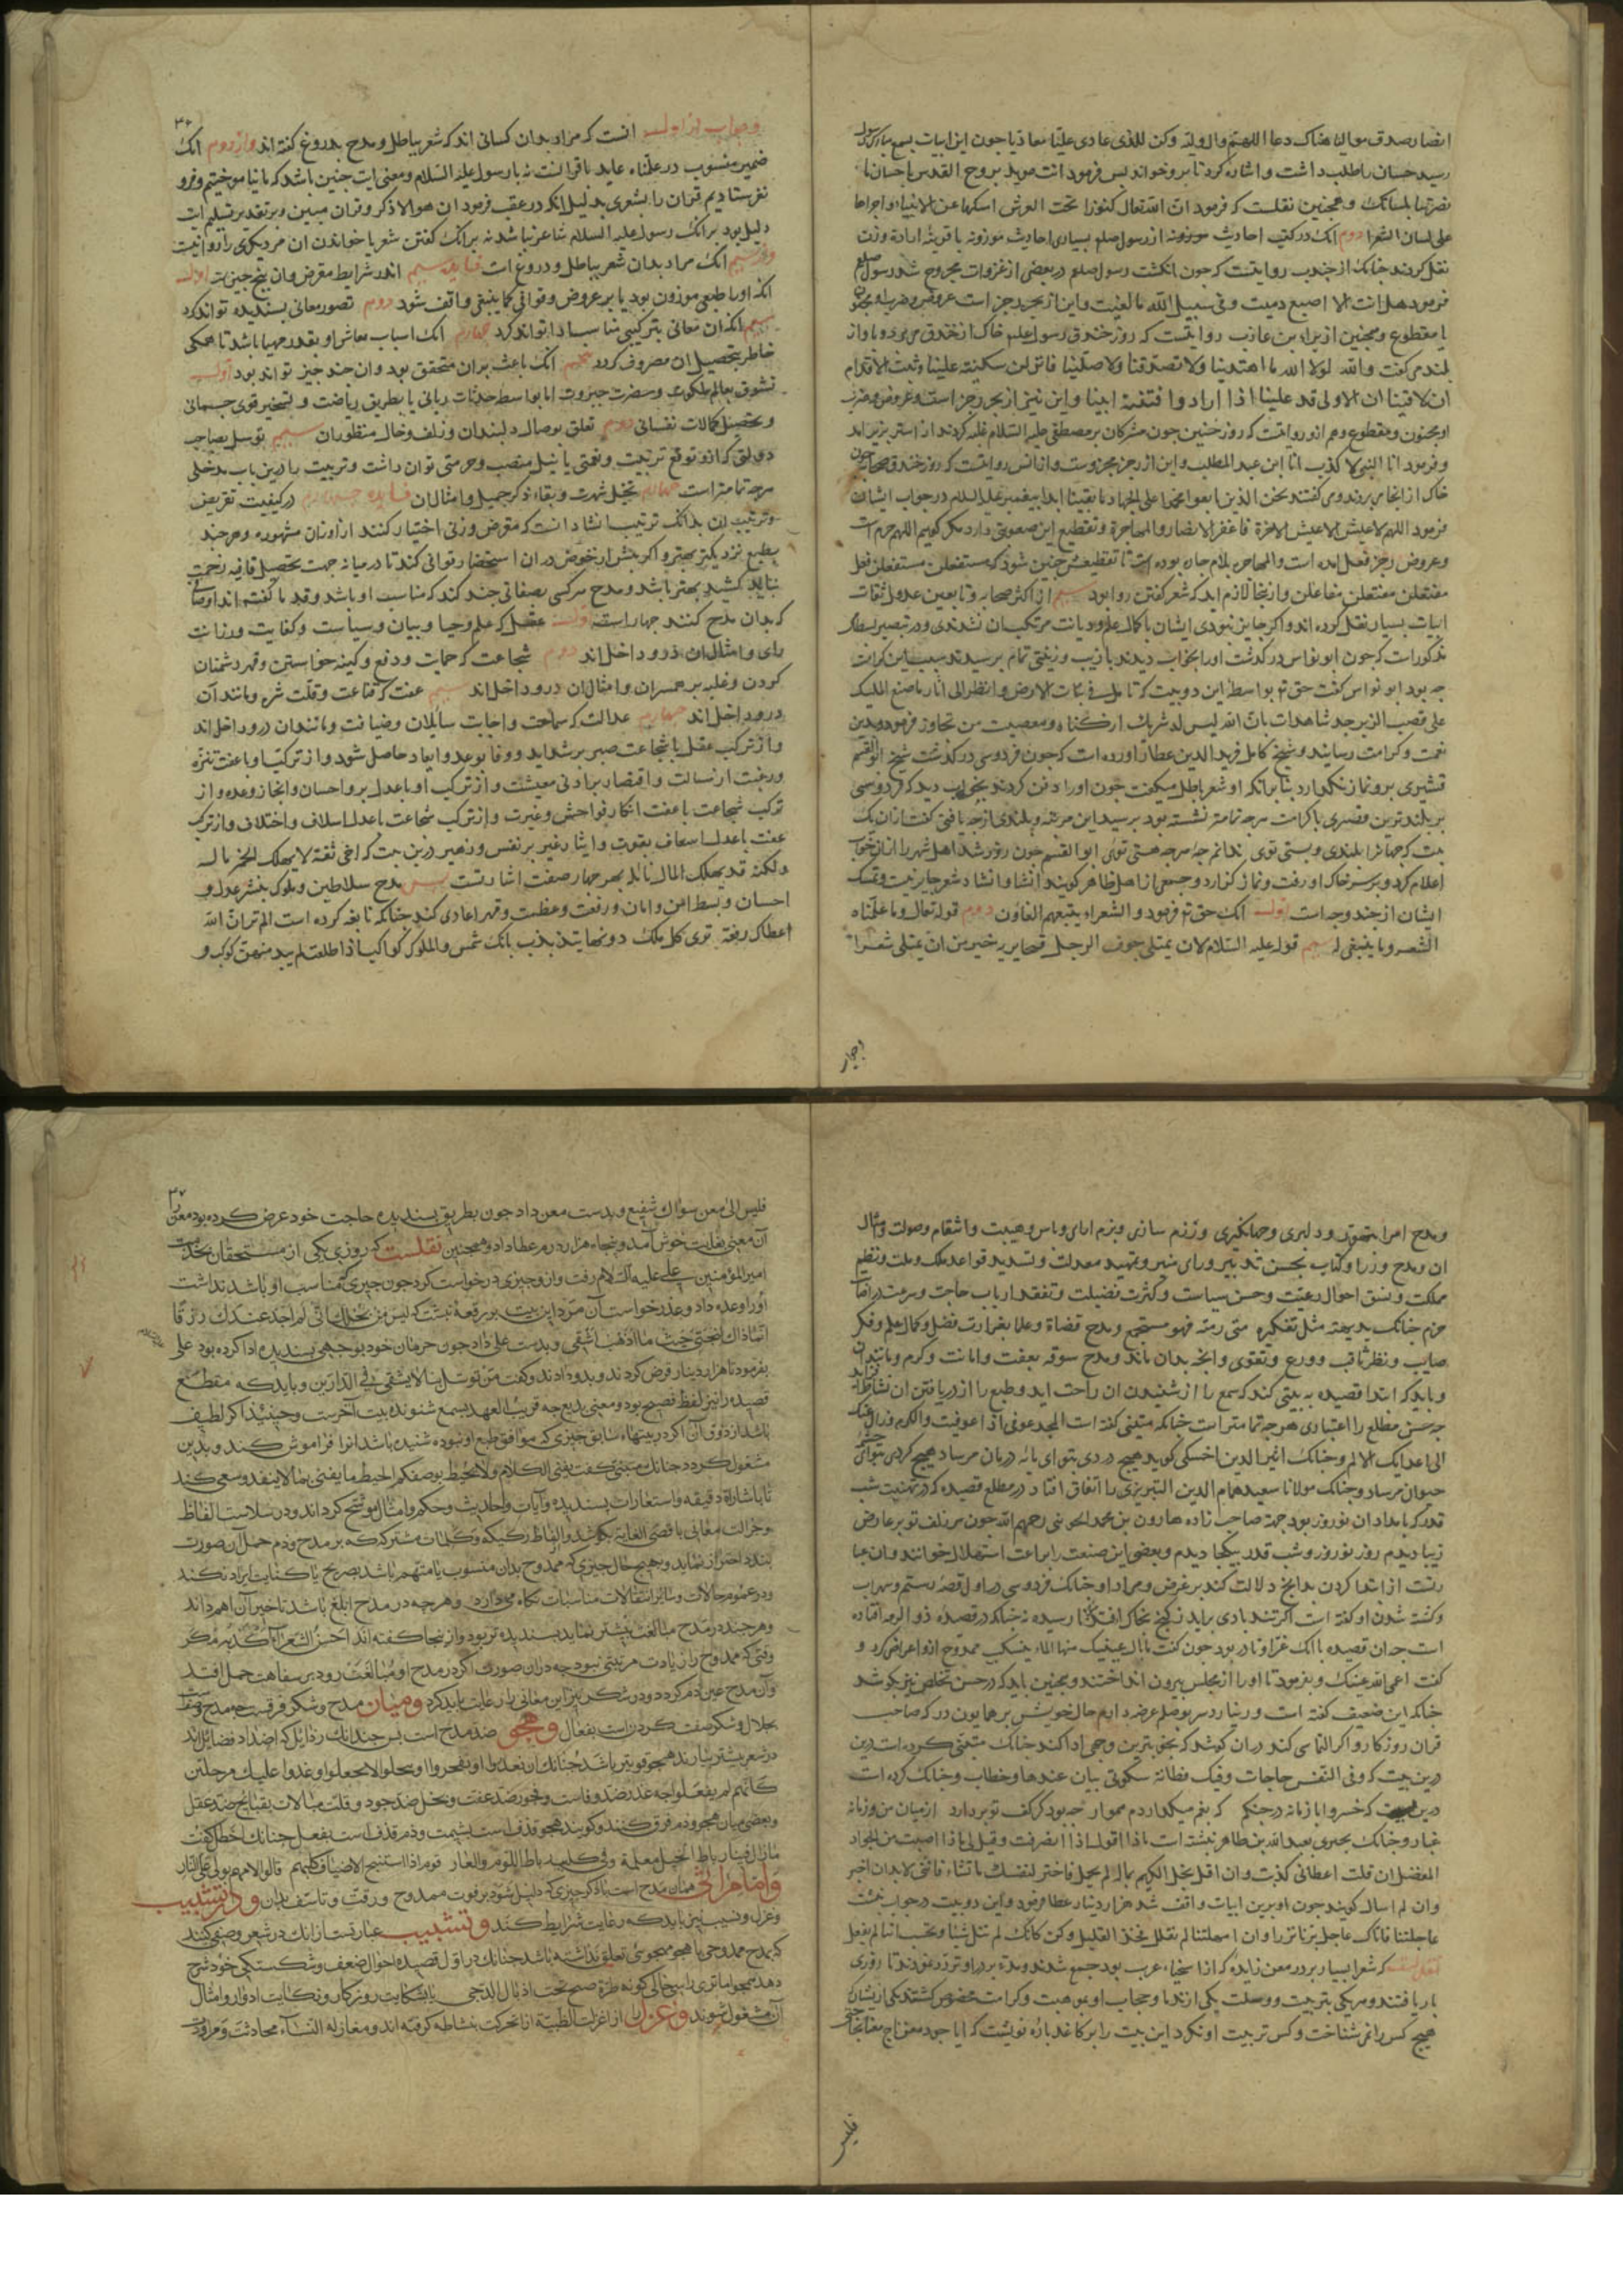 انصار صدق موالینا هناک دعا اللهم وال ولیه وکن للذی عادی علیا معادیا جون این ابیات بسمع مبارک رسول
رسید حسان را طلب داشت و اشاره کرد تا برو خواند بس فرمود انت موید بروح القدس یا حسان ما
نصرتنا بلسانک و همجنین نقلست که فرمود ان الله تعالی کنوزا تحت العرش اسکنها عن الانبیاء و اجراها
علی لسان الشعرا دوم انک در کتب احادیث موزونه از رسول صلعم بسیاری احادیث موزونه با قرینه ارادة وزن
نقل کردند جنانک از جندب روایتست که جون انکشت رسول صلعم در بعضی از غزوات مجروح شد رسول صلعم
فرمود هل انت الا اصبع دمیت و فی سبیل الله ما لقیت و این از بحر رجز است عروض و ضرب او مخبون
یا مقطوع و همجنین از براء بن عازب روایتست که روز خندق رسول علم خاک از خندق می برد و باواز
بلند می کفت والله لولا الله ما اهتدینا ولا تصدقنا ولا صلینا فانزلن سکینة علینا و ثبت الاقدام
ان لاقینا ان الاولی قد علینا اذا ارادوا فتنة ابینا و این نیز از بحر رجز است و عروض و ضرب
او مخبون و مقطوع و هم ازو روایتست که روز حنین جون مشرکان بر مصطفی علیه السلام غلبه کردند از استر بزیر امد
و فرمود انا النبی لا کذب انا ابن عبد المطلب و این از رجز مجزوست و از انس روایتست که روز خندق صحابه جون
خاک از انجا بر بردندی کفتندی نحن الذین بایعوا محمدا علی الجهاد ما بقینا ابدا بیغمبر علیه السلام در جواب ایشان
فرمود اللهم لا عیش الا عیش الاخرة فاغفر الانصار والمهاجرة و تقطیع این صعوبتی دارد مکر کوییم اللهم خرم است
و عروض رجز فعل امده است و المهاجره بلام جاره بوده است تا تقطیعش جنین شود که مستفعلن مستفعلن فعل
مفتعلن مفتعلن مفاعلن و ازینجا لازم اید که شعر کفتن روا بود سیم از اکثر صحابه و تابعین عدول ثقات
ابیات بسیار نقل کرده اند و اکر جایز نبودی ایشان با کمال علم و دیانت مرتکب ان نشدندی و در تبصیر
مذکور است که جون ابو نواس در کذشت اورا بخواب دیدند با زیب و زینتی تمام برسیدند سبب این کرامت
جه بود ابو نواس کفت حق تع بواسطه این دو بیت که تامل فی نبات الارض و انظر الی اثار ما صنع الملیک
علی قصب الزبرجد شاهدات بان الله لیس له شریک از کناه و معصیت من تجاوز فرمود و بدین
نعمت و کرامت رسانید و شیخ کامل فرید الدین عطار اورده است که جون فردوسی در کذشت شیخ ابو القسم
قشیری برو نماز نکزارد بنا برانکه او شعر باطل میکفت جون اورا دفن کردند بخواب دید که فردوسی
بر بلندترین قصری با کرامت هرجه تمامتر نشسته بود برسید این مرتبه و بلندی از جه یافتی کفت از ان یک
بیت که جهانرا بلندی و بستی توی ندانم جه هرجه هستی توی ابو القسم جون روز شد اهل شهر را از ان خواب
اعلام کرد و بر سر خاک او رفت و نماز کزارد و جمعی از اهل ظاهر کویند انشا و انشاد شعر جایز نیست و تمسک
ایشان از جند وجه است اول انک حق تع فرمود و الشعراء یتبعهم الغاوون دوم قوله تعالی و ما علمناه
الشعر و ما ینبغی له سیم قوله علیه السلام لان یمتلی جوف الرجل قیحا یریه خیر من ان یمتلی شعرا
وجواب
۳۶
وجواب از اول انست که مراد بدان کسانی اند که شعر بباطل و مدح بدروغ کفته اند و از دوم انک
ضمیر منسوب در علمناه عاید با قرانست نه با رسول علیه السلام و معنی ایت جنین باشد که ما نیاموختیم و فرو
نفرستادیم قران را بشعری بدلیل انکه در عقب فرمود ان هو الا ذکر و قران مبین و بر تقدیر تسلیم ایت
دلیل بود بر انک رسول علیه السلام شاعر نباشد نه بر انک کفتن شعر یا خواندن ان مر دیکری را روا نیست
و از سیم انک مراد بدان شعر بباطل و دروغ است فایده سیم اندر شرایط مقرض و ان بنج جیزست اول
انک اورا طبعی موزون بود یا بر عروض و قوافی کما ینبغی واقف شود دوم تصور معانی بسندیده تواند کرد
سیم انک ان معانی بترکیبی مناسب ادا تواند کرد جهارم انک اسباب معاش او بقدر مهیا باشد تا همکی
خاطر بتحصیل ان مصروف کردد بنجم انک باعث بران متحقق بود و ان جند جیز تواند بود اول
تشوق بعالم ملکوت و حضرت جبروت اما بواسطه جذبات ربانی یا بطریق ریاضت و تسخیر قوی جسمانی
و تحصیل کمالات نفسانی دوم تعلق بوصال دلبندان و زلف و خال منظوران سیم توسل بصاحب
دولتی که ازو توقع تربیت و نعمتی یا نیل منصب و حرمتی توان داشت و تربیت را درین باب مدخلی
هرجه تمامتر است جهارم تخیل شهرت و بقاء ذکر جمیل و امثال ان فایده جهارم در کیفیت تقریض
و ترتیب ان بدانک ترتیب انشاد انست که مقرض وزنی اختیار کنند از اوزان مشهوره و هرجند
بطبع نزدیکتر بهتر و اکر بیش از خوض دران استحضار قوافی کند تا در میانه جهت تحصیل قافیه زحمت
نباید کشید بهتر باشد و مدح هر کسی بصفاتی جند کند که مناسب او باشد و قدما کفته اند اوصافی
که بدان مدح کنند جهار است اول عقل که علم و حیا و بیان و سیاست و کفایت و رزانت
رای و امثال ان درو داخل اند دوم شجاعت که حمایت و دفع و کینه خواستن و قهر دشمنان
کردن و غلبه بر همسران و امثال ان درو داخل اند سیم عفت که قناعت و قلت شره و مانند آن
درو داخل اند جهارم عدالت که سماحت و اجابت سایلان و ضیافت و مانند ان درو داخل اند
و از ترکیب عقل با شجاعت صبر بر شداید و وفا بوعد و ایعاد حاصل شود و از ترکیب او با عفت تنزه
و رغبت از سالت و اقتصار بر ادنی معیشت و از ترکیب او با عدل بر و احسان و انجاز وعده و از
ترکیب شجاعت با عفت انکار فواحش و غیرت و از ترکیب شجاعت با عدل اسلاف و اختلاف و از ترکیب
عفت با عدل اسعاف بقوت و ایثار غیر بر نفس و زهیر درین بیت که اخی ثقة لا یهلک الخمر ماله
ولکنه قد یهلک المال نائله بهر جهار صفت اشارتست بس مدح سلاطین و ملوک بنشر عدل و
احسان و بسط امن و امان و رفعت و عظمت و قهر اعادی کند جنانکه نابغه کرده است الم تر ان الله
اعطاک رفعة تری کل ملک دونها یتذبذب بانک شمس و الملوک کواکب اذا طلعت لم یبد منهن کوکب و
و مدح امرا بتهور و دلیری و جهانکیری و رزم سازی و بزم ارای و باس و هیبت و انتقام و صولت و مثال
ان و مدح وزرا و کتاب بحسن تدبیر و رای منیر و تمهید معدلت و تسدید قواعد ملک و ملت و نظم
مملکت و نسق احوال رعیت و حسن سیاست و کثرت فضیلت و تفقد ارباب حاجت و سرعت دریافت
حزم جنانک بدیهته مثل تفکیره متی رمته فهو مستجمع و مدح قضاة و علما بغزارت فضل و کمال علم و فکر
صایب و نظر ثاقب و ورع و تقوی و انجه بدان ماند و مدح سوقه بعفت و امانت و کرم و مانند ان
و باید که ابتدا قصیده به بیتی کند که سمع را از شنیدن ان راحت اید و طبع را از دریافتن ان نشاط فزاید
جه حسن مطلع را اعتباری هرجه تمامتر است جنانکه متنبی کفته است المجد عوفی اذ عوفیت و الکرم و زال عنک
الی اعدایک الالم و جنانک اثیر الدین اخسیکتی کوید هیج دردی بتو ای مایه درمان مرساد هیج کردی بتو ای جشمه
حیوان مرساد و جنانک مولانا سعید همام الدین التبریزی را اتفاق افتاد در مطلع قصیده که در تهنیت شب
قدر که بامداد ان نوروز بود جهة صاحب زاده هارون بن محمد الجوینی رحمهم الله جون سر زلف تو بر عارض
زیبا دیدم روز نوروز و شب قدر بیکجا دیدم و بعضی این صنعت را براعت استهلال خوانند و ان عبا
رتست از ابتدا کردن بدانج دلالت کند بر غرض و مراد او جنانک فردوسی در اول قصه رستم و سهراب
و کشته شدن او کفته است اکر تندبادی براید ز کنج بخاک افکند نا رسیده ترنج جنانکه در قصیده ذو الرمه افتاده
است جه ان قصیده با انک غرا و نادر بود جون کفت ما بال عینیک منها الماء ینسکب ممدوح ازو اعراض کرد و
کفت اعمی الله عینیک و بفرمود تا اورا از مجلس بیرون انداختند و همجنین باید که در حسن تخلص نیز بکوشد
جنانکه این ضعیف کفته است و رنیارد سر بوصلم عرضه دارم حال خویش بر همایون درکه صاحب
قران روزکار و اکر التماسی کند دران کوشد که بخوبترین وجهی ادا کند جنانک متنبی کرده است درین
درین بیت که و فی النفس حاجات و فیک فطانة سکوتی بیان عندها و خطاب و جنانک کرده است
درین بیت که خسروا با زمانه در جنکم که بغم میکدازدم هموار جه بود کر کف تو بردارد از میان من و زمانه
غبار و جنانک بحتری بعبد الله بن طاهر نبشته است ماذا اقول اذا انصرفت و قیل لی ماذا اصبت من الجواد
المفضل ان قلت اعطانی کذبت و ان اقل بخل الکریم بماله لم یجمل فاختر لنفسک ما تشاء فاننی لا بد ان اخبر
و ان لم اسال کویند جون او برین ابیات واقف شد هزار دینار عطا فرمود و این دو بیت در جواب نبشت
عاجلتنا فاتاک عاجل برنا نزرا و ان امهلتنا لم نقلل فخذ القلیل و کن کانک لم تنل شیئا و نحن کاننا لم نفعل
نقلست که شعرا بسیار بر در معن زایده که از اسخیاء عرب بود جمع شدند و مدتی بر در او تردد نمودند تا روزی
بار یافتند و هر یکی بتربیت و وسیلت یکی از ندما و حجاب او بموهبت و کرامت مخصوص کشتند یکی از یشان
هیج کس را نمی شناخت و کس تربیت او نکرد این بیت را بر کاغذ باره نوشت که ایا جود معن ناج معنا بحاجتی
فلیس
۳۷
فلیس الی معن سواک شفیع و بدست معن داد جون بطریق بسندیده حاجت خود عرض کرده بود معن را
آن معنی بغایت خوش آمد و بنجاه هزار درم عطا داد و همجنین نقلست که روزی یکی از مستحقان بخدمت
امیر المؤمنین علی علیه السلام رفت و ازو جیزی درخواست کرد جون جیزی که مناسب او باشد نداشت
اورا وعده داد و عذر خواست آن مرد این بیت بر رقعه نبشت که لیس من بخلک انی لم اجد عندک رزقا
انما ذاک لبختی حیث ما اذهب اشقی و بدست علی داد جون حرمان خود بوجهی بسندیده ادا کرده بود علی
بفرمود تا هزار دینار قرض کردند و بدو دادند و کفت من توسل بنا لا یشقی فی الدارین و باید که مقطع
قصیده را نیز لفظ فصیح بود و معنی بدیع جه قریب العهد بسمع شنونده بیت آخرست و حینئذ اکر لطیف
باشد از ذوق آن اکر در بیتهاء سابق جیزی که موافق طبع او نبوده شنیده باشد انرا فراموش کند و بدین
مشغول کردد جنانک متنبی کفت یفنی الکلام و لا یحیط بوصفکم ایحیط ما یفنی بما لا ینفد و سعی کند
تا باشارات دقیقه و استعارات بسندیده و آیات و احادیث و حکم و امثال موشح کرداند و در سلاست الفاظ
و جزالت معانی باقصی الغایه بکوشد و از الفاظ رکیکه و کلمات مشترکه که بر مدح و ذم حمل آن صورت
بندد احتراز نماید و بهیج حال جیزی که ممدوح بدان منسوب یا متهم باشد بصریح یا کنایت ایراد نکند
و در عموم حالات و سایر انتقالات مناسبات نکاه می دارد و هرجه در مدح ابلغ باشد تاخیر آن اهم داند
و هر جند در مدح مبالغت بیشتر نماید بسندیده تر بود و از ینجا کفته اند احسن الشعر اکذبه مکر
وقتی که ممدوح را زیادت مرتبتی نبود جه دران صورت اکر در مدح او مبالغت رود بر سفاهت حمل افتد
و آن مدح عین ذم کردد و در شکر نیز این معانی را رعایت باید کرد و میان مدح و شکر فرقست جه مدح وصفست
بجلال و شکر صفت کردنست بفعال و هجو ضد مدح است بس جندانک رذایل که اضداد فضایل اند
در شعر بیشتر بیارند هجو قویتر باشد جنانک ان تغدروا او تفجروا او تبخلوا لا تحفلوا و غدوا علیک مرجلین
کانهم لم یفعلوا جه غدر ضد وفاست و فجور ضد عفت و بخل ضد جود و قلت مبالات بقبایح ضد عقل
و بعضی میان هجو و ذم فرق کنند و کویند هجو قذف است بشیمت و ذم قذف است بفعل جنانک اخطل کفت
ما زال فینا رباط الخیل معلمة و فی کلیب رباط اللوم و العار قوم اذا استنبح الاضیاف کلبهم قالوا لامهم بولی علی النار
و اما مراثی همان مدح است با ذکر جیزی که دلیل شود بر فوت ممدوح و رقت و تاسف بدان و در تشبیب
و غزل و نسیب نیز باید که رعایت شرایط کند و تشبیب عبارتست از انک در شعر وصفی کنند
که بمدح ممدوحی یا هجو مهجوی تعلق نداشته باشد جنانک در اول قصیده احوال ضعف و شکستکی خود شرح
دهد همجو اما تری راسی حاکی لونه طرة صبح تحت اذیال الدجی یا بشکایت روزکار و نکایت ادوار و امثال
آن مشغول شوند و غزل از اغزلت الظبیة از تحرکت بنشاطه کرفته اند و مغازلة النساء محادثت و مراودت